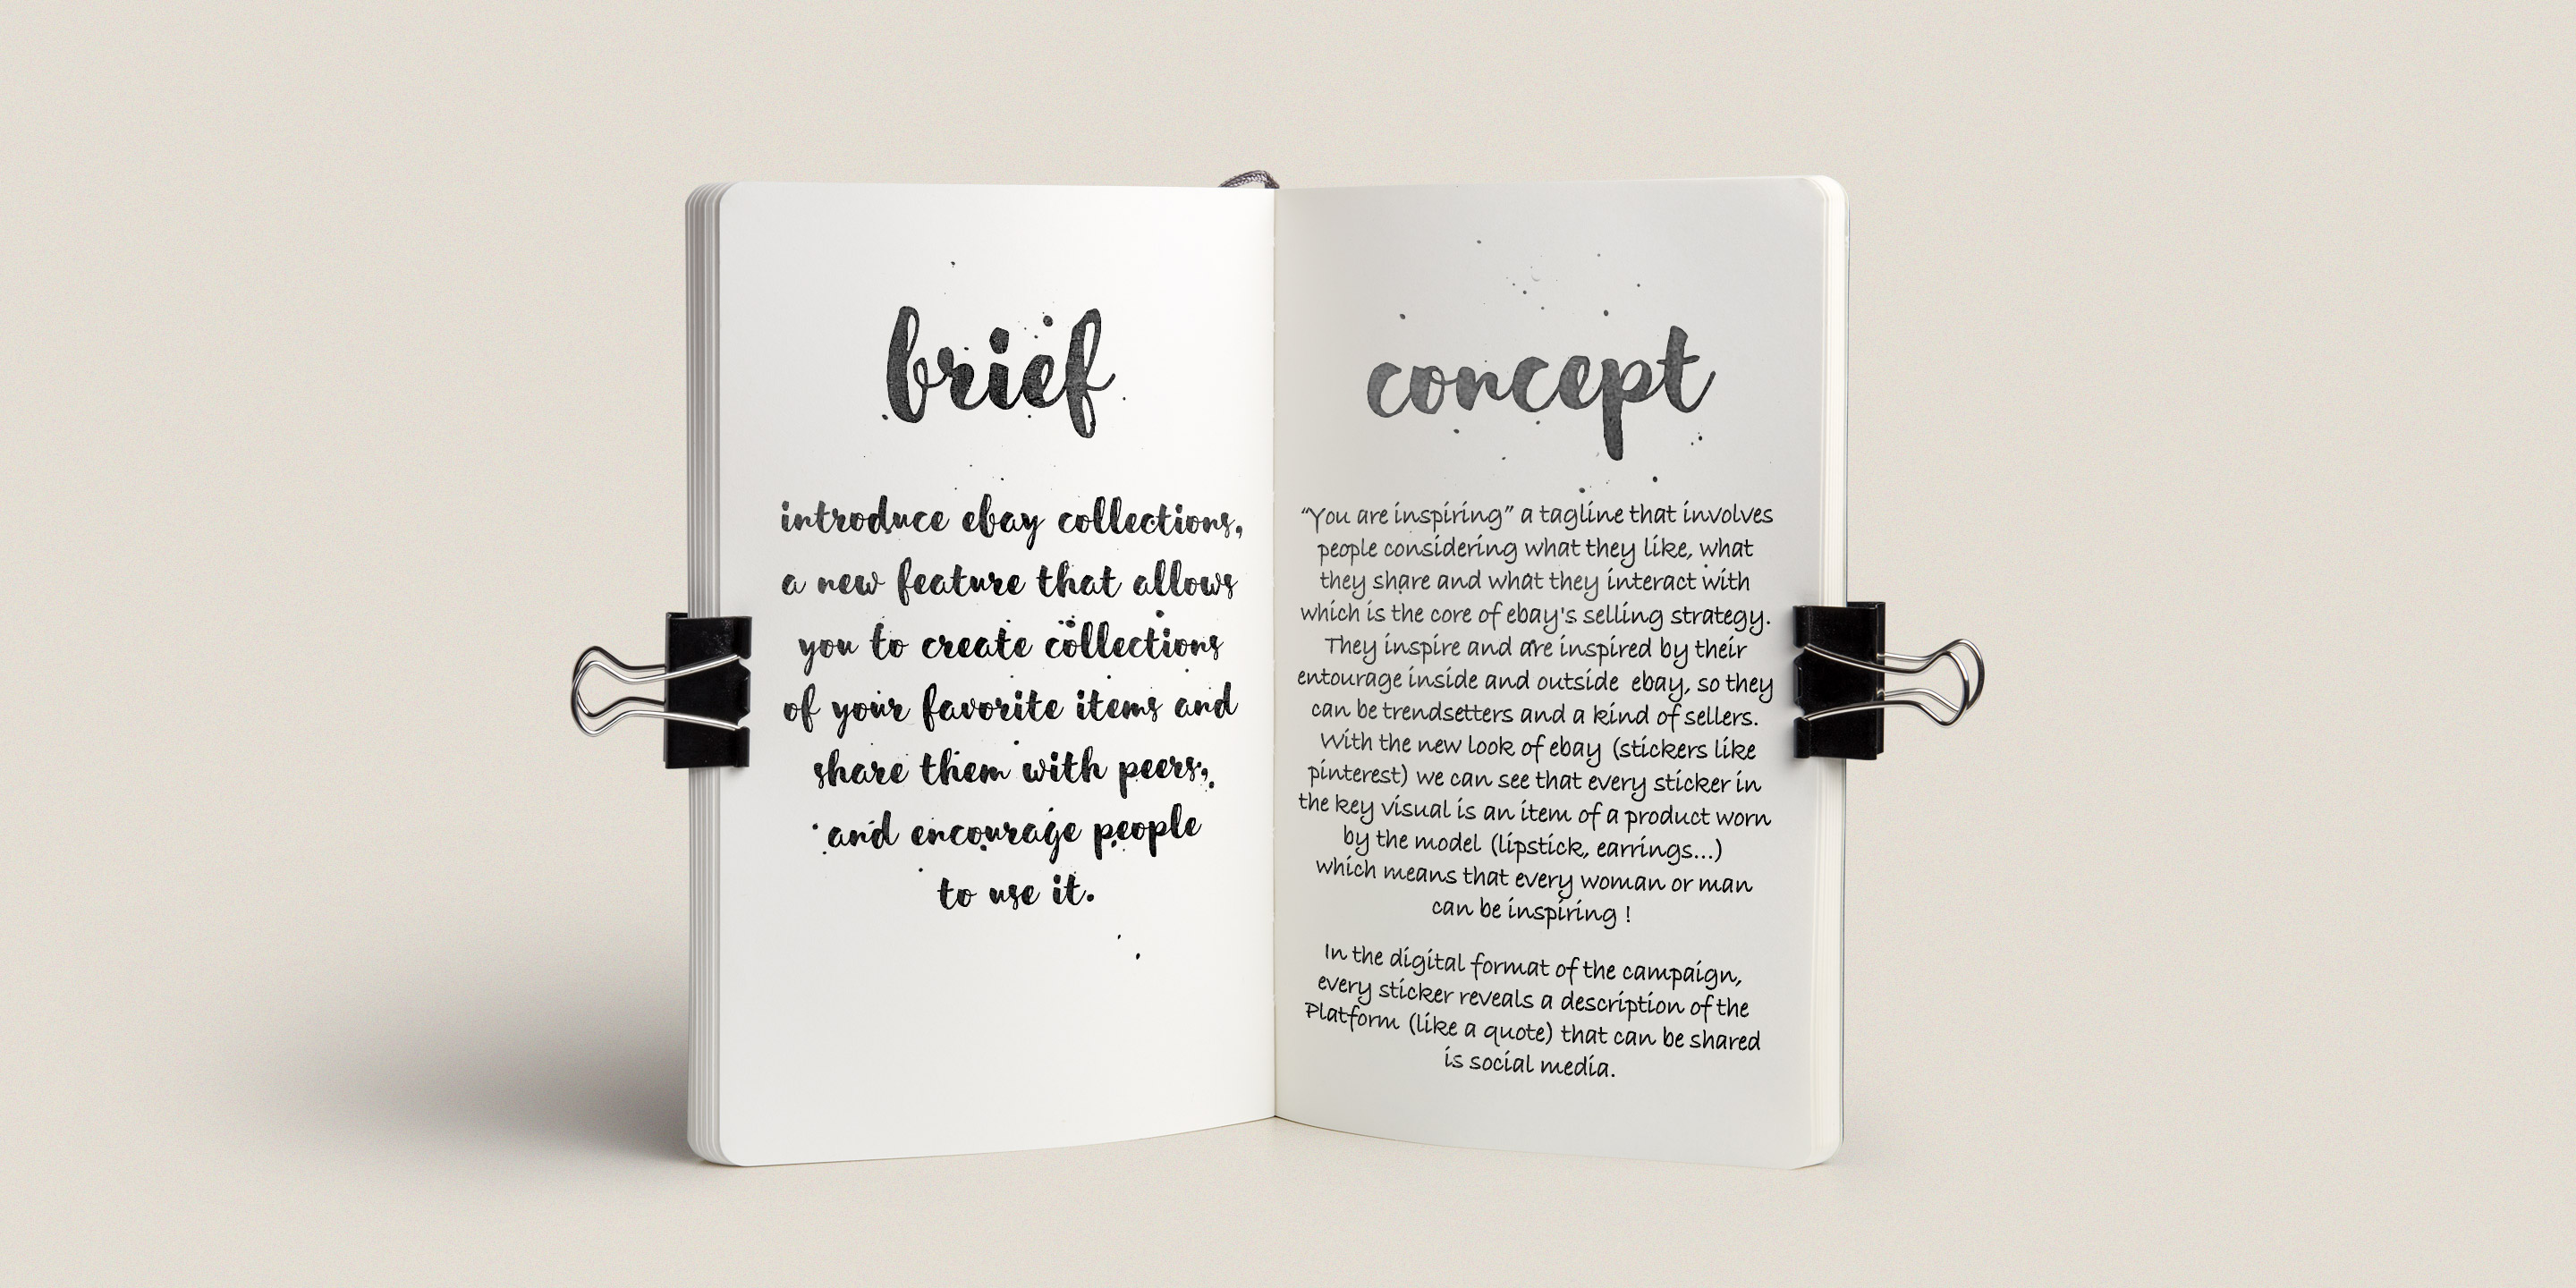 brief
introduce ebay collections,
a new feature that allows
you to create collections
of your favorite items and
share them with peers,
and encourage people
to use it.
concept
“You are inspiring” a tagline that involves
people considering what they like, what
they share and what they interact with
which is the core of ebay's selling strategy.
They inspire and are inspired by their
entourage inside and outside ebay, so they
can be trendsetters and a kind of sellers.
With the new look of ebay (stickers like
pinterest) we can see that every sticker in
the key visual is an item of a product worn
by the model (lipstick, earrings...)
which means that every woman or man
can be inspiring !
In the digital format of the campaign,
every sticker reveals a description of the
Platform (like a quote) that can be shared
is social media.